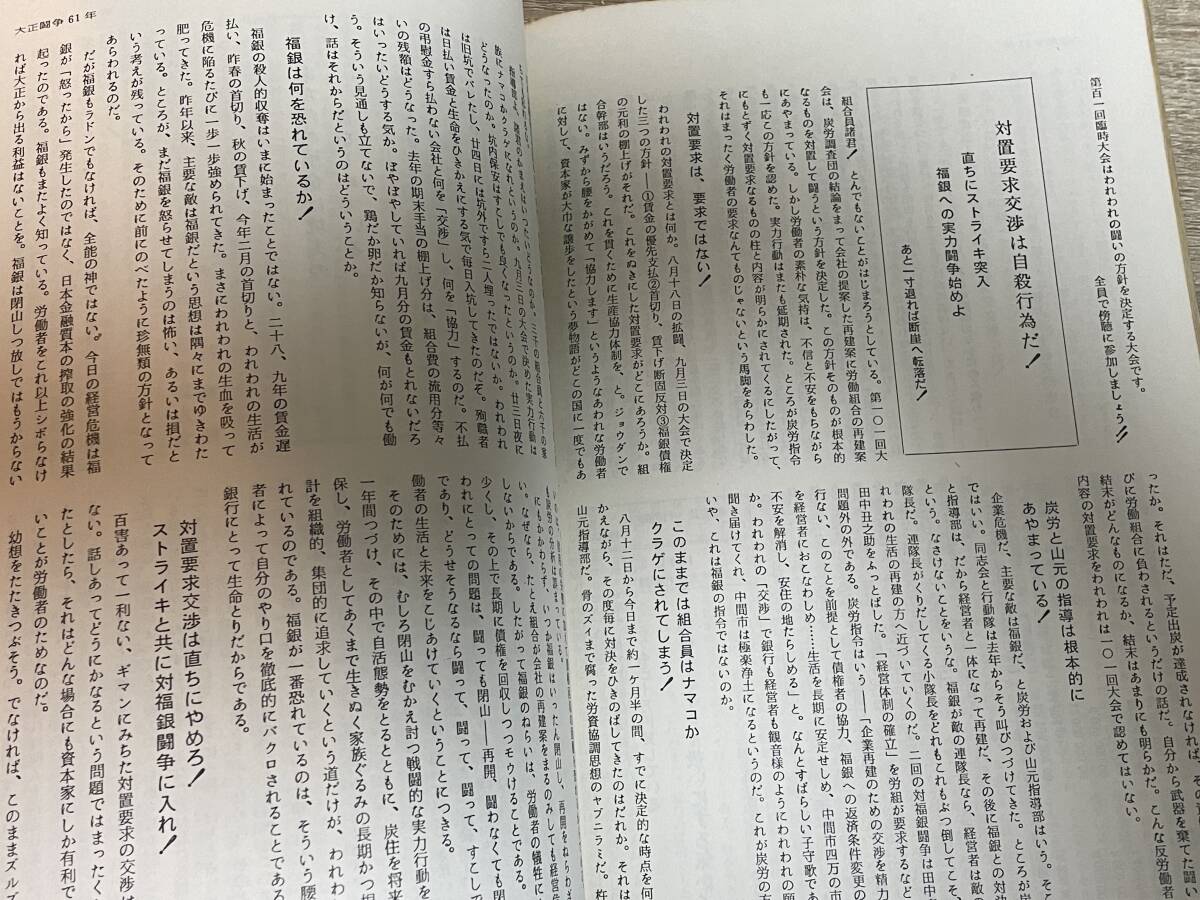 第百一回臨時大会はわれわれの闘いの方針を決定する大会です。
全員で傍聴に参加しましょう!!
対置要求交渉は自殺行為だ!
直ちにストライキ突入
福銀への実力闘争始めよ
あと一寸退れば断崖へ転落だ!
組合員諸君! とんでもないことがはじまろうとしている。第一〇一回大
会は、炭労調査団の結論をまって会社の提案した再建案に労働組合の再建案
なるものを対置して闘うという方針を決定した。この方針そのものが根本的
にあやまっている。しかし労働者の素朴な気持は、不信と不安をもちながら
も一応この方針を認めた。実力行動はまたも延期された。ところが炭労指令
にもとずく対置要求なるものの柱と内容が明らかにされてくるにしたがって、
それはまったく労働者の要求なんてものじゃないという馬脚をあらわした。
対置要求は、要求ではない!
われわれの対置要求とは何か。八月十八日の拡闘、九月三日の大会で決定
した三つの方針――①賃金の優先支払②首切り、賃下げ断固反対③福銀債権
の元利の棚上げがそれだ。これをぬきにした対置要求がどこにあろうか。組
合幹部はいうだろう。これを貫くために生産協力体制を、と。ジョウダンで
はない。みずから腰をかがめて「協力します」というようなあわれな労働者
に対して、資本家が大巾な譲歩をしたという夢物語がどこの国に一度でもあ
ったか。それはただ、予定出炭が達成されなければ、その
びに労働組合に負わされるというだけの話だ。自分から武器を棄てた
結末がどんなものになるか、結末はあまりにも明らかだ。こんな反労働者
内容の対置要求をわれわれは一〇一回大会で認めてはいない。
炭労と山元の指導は根本的に
あやまっている!
企業危機だ、主要な敵は福銀だ、と炭労および山元指導部はいう。そ
ではいい。同志会と行動隊は去年からそう叫びつづけてきた。ところが炭
と指導部は、だから経営者と一体になって再建だ、その後に福銀との対決
という。なさけないことをいうな。福銀が敵の連隊長なら、経営者は敵の
隊長だ。連隊長がくりだしてくる小隊長をどれもこれもぶつ倒してこそ、
れわれの生活の再建の方へ近づいていくのだ。二回の対福銀闘争は田中
田中丑之助をふっとばした。「経営体制の確立」を労組が要求するなど
問題外の外である。炭労指令はいう――「企業再建のための交渉を精力
行ない、このことを前提として債権者の協力、福銀への返済条件変更の
を経営者におこなわしめ……生活を長期に安定せしめ、中間市四万の市
不安を解消し、安住の地たらしめる」と。なんとすばらしい子守歌であ
か。われわれの「交渉」で銀行も経営者も観音様のようにわれわれの願
聞き届けてくれ、中間市は極楽浄土になるというのだ。これが炭労の方
いや、これは福銀の指令ではないのか。
このままでは組合員はナマコか
クラゲにされてしまう!
八月十二日から今日まで約一ヶ月半の間、すでに決定的な時点を何
かえながら、その度毎に対決をひきのばしてきたのはだれか。それは
山元指導部だ。骨のズイまで腐った労資協調思想のヤブニラミだ。杵
大正闘争61年
族にナマコかクラゲになれというのか。九月三日の大会で決めた実力行動は
どうなったのか。坑内保安はすこしでも良くなったというのか。廿三日夜に
は旧坑でバレたし、廿四日には坑外ですら二人埋ったではないか。われわれ
は日払い賃金と生命をひきかえにする気で毎日入坑してきたのだぞ。殉職者
の弔慰金すら払わない会社と何を「交渉」し、何を「協力」するのだ。不払
いの残額はどうなった。去年の期末手当の棚上げ分は、組合費の流用分等々
はいったいどうする気か。ぼやぼやしていれば九月分の賃金もとれないだろ
う。そういう見通しも立てないで、鶏だか卵だか知らないが、何が何でも働
け、話はそれからだというのはどういうことか。
福銀は何を恐れているか!
福銀の殺人的収奪はいまに始まったことではない。二十八、九年の賃金遅
払い、昨春の首切り、秋の賃下げ、今年二月の首切りと、われわれの生活が
危機に陥るたびに一歩一歩強められてきた。まさにわれわれの生血を吸って
肥ってきた。昨年以来、主要な敵は福銀だという思想は隅々にまでゆきわた
っている。ところが、まだ福銀を怒らせてしまうのは怖い、あるいは損だと
いう考えが残っている。そのために前にのべたように珍無類の方針となって
あらわれるのだ。
だが福銀もラドンでもなければ、全能の神ではない。今日の経営危機は福
銀が「怒ったから」発生したのではなく、日本金融資本の搾取の強化の結果
起ったのである。福銀もまたよく知っている。労働者をこれ以上シボらなけ
れば大正から出る利益はないことを。福銀は閉山しっ放しではもうからない
にもかかわらず、いつか福銀はいったん閉山し、再開をねらわざ
い。なぜなら、たとえ組合が会社の再建案をまるのみしても経営危
しないからである。したがって福銀のねらいは、労働者の犠牲に
少くし、その上で長期に債権を回収しつつモウけることである。
われにとっての問題は、闘っても閉山――再開、闘わなくても閉
であり、どうせそうなるなら闘って、闘って、闘って、すこしで
働者の生活と未来をこじあけていくということにつきる。
そのためには、むしろ閉山をむかえ討つ戦闘的な実力行動を
一年間つづけ、その中で自活態勢をとるとともに、炭住を将来
保し、労働者としてあくまで生きぬく家族ぐるみの長期かつ根
計を組織的、集団的に追求していくという道だけが、われわ
れているのである。福銀が一番恐れているのは、そういう腰
者によって自分のやり口を徹底的にバクロされることであ
銀行にとって生命とりだからである。
対置要求交渉は直ちにやめろ!
ストライキと共に対福銀闘争に入れ!
百害あって一利ない、ギマンにみちた対置要求の交渉は
ない。話しあってどうにかなるという問題ではまったく
たとしたら、それはどんな場合にも資本家にしか有利で
いことが労働者のためなのだ。
幻想をたたきつぶそう。でなければ、このままズルズ